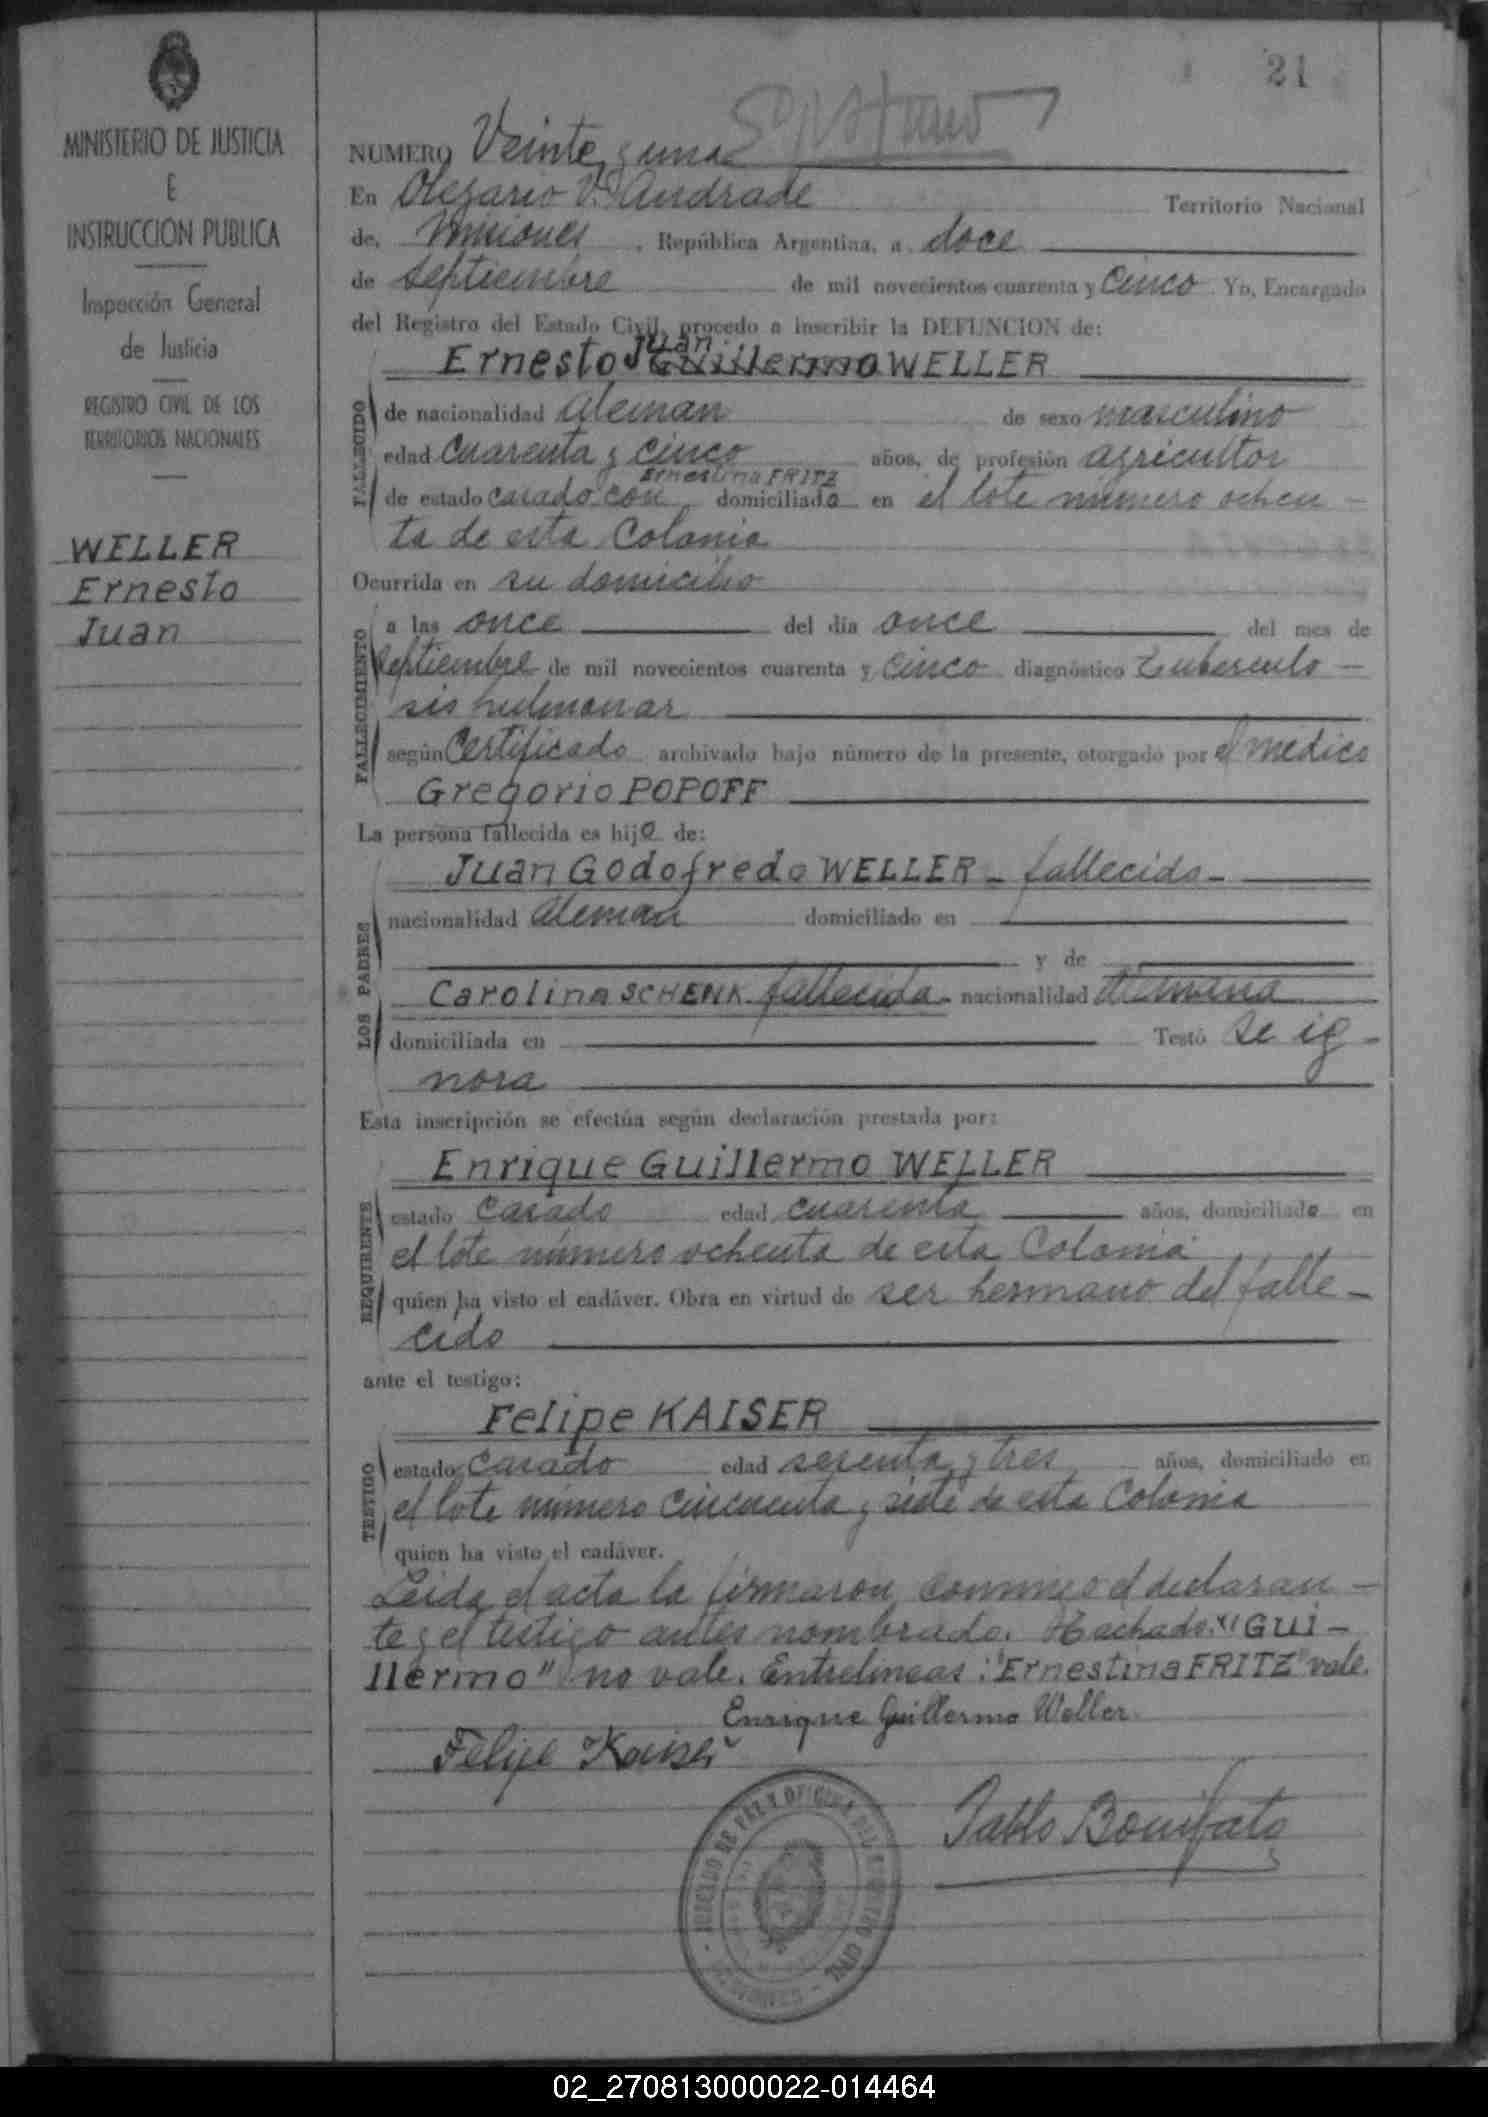 21
MINISTERIO DE JUSTICIA
E
INSTRUCCION PUBLICA
Inspección General
de Justicia
REGISTRO CIVIL DE LOS
TERRITORIOS NACIONALES
WELLER
Ernesto
Juan
NUMERO Veinte y una
En Olegario V. Andrade Territorio Nacional
de, Misiones, República Argentina, a doce
de septiembre de mil novecientos cuarenta y cinco Yo, Encargado
del Registro del Estado Civil, procedo a inscribir la DEFUNCION de:
Juan
Ernesto Guillermo WELLER
FALLECIDO
de nacionalidad aleman de sexo masculino
edad cuarenta y cinco años, de profesión agricultor
Ernestina FRITZ
de estado casado con domiciliado en el lote número ochen-
ta de esta Colonia
Ocurrida en su domicilio
FALLECIMIENTO
a las once del día once del mes de
septiembre de mil novecientos cuarenta y cinco diagnóstico Tuberculo-
sis pulmonar
según Certificado archivado bajo número de la presente, otorgado por el médico
Gregorio POPOFF
La persona fallecida es hijo de:
LOS PADRES
Juan Godofredo WELLER - fallecido -
nacionalidad aleman domiciliado en
y de
Carolina SCHENK fallecida - nacionalidad Alemana
domiciliada en Testó se ig-
nora
Esta inscripción se efectúa según declaración prestada por:
REQUIRENTE
Enrique Guillermo WELLER
estado casado edad cuarenta años, domiciliado en
el lote número ochenta de esta Colonia
quien ha visto el cadáver. Obra en virtud de ser hermano del falle-
cido
ante el testigo:
TESTIGO
Felipe KAISER
estado casado edad sesenta y tres años, domiciliado en
el lote número cincuenta y siete de esta Colonia
quien ha visto el cadáver.
Leida el acta la firmaron conmigo el declaran-
te y el testigo antes nombrado. Tachado: "Gui-
llermo" no vale. Entrelineas: "Ernestina FRITZ" vale.
Enrique Guillermo Weller
Felipe Kaiser
Pablo Bonifato
JUZGADO DE PAZ Y OFICINA DEL REGISTRO CIVIL
02_270813000022-014464